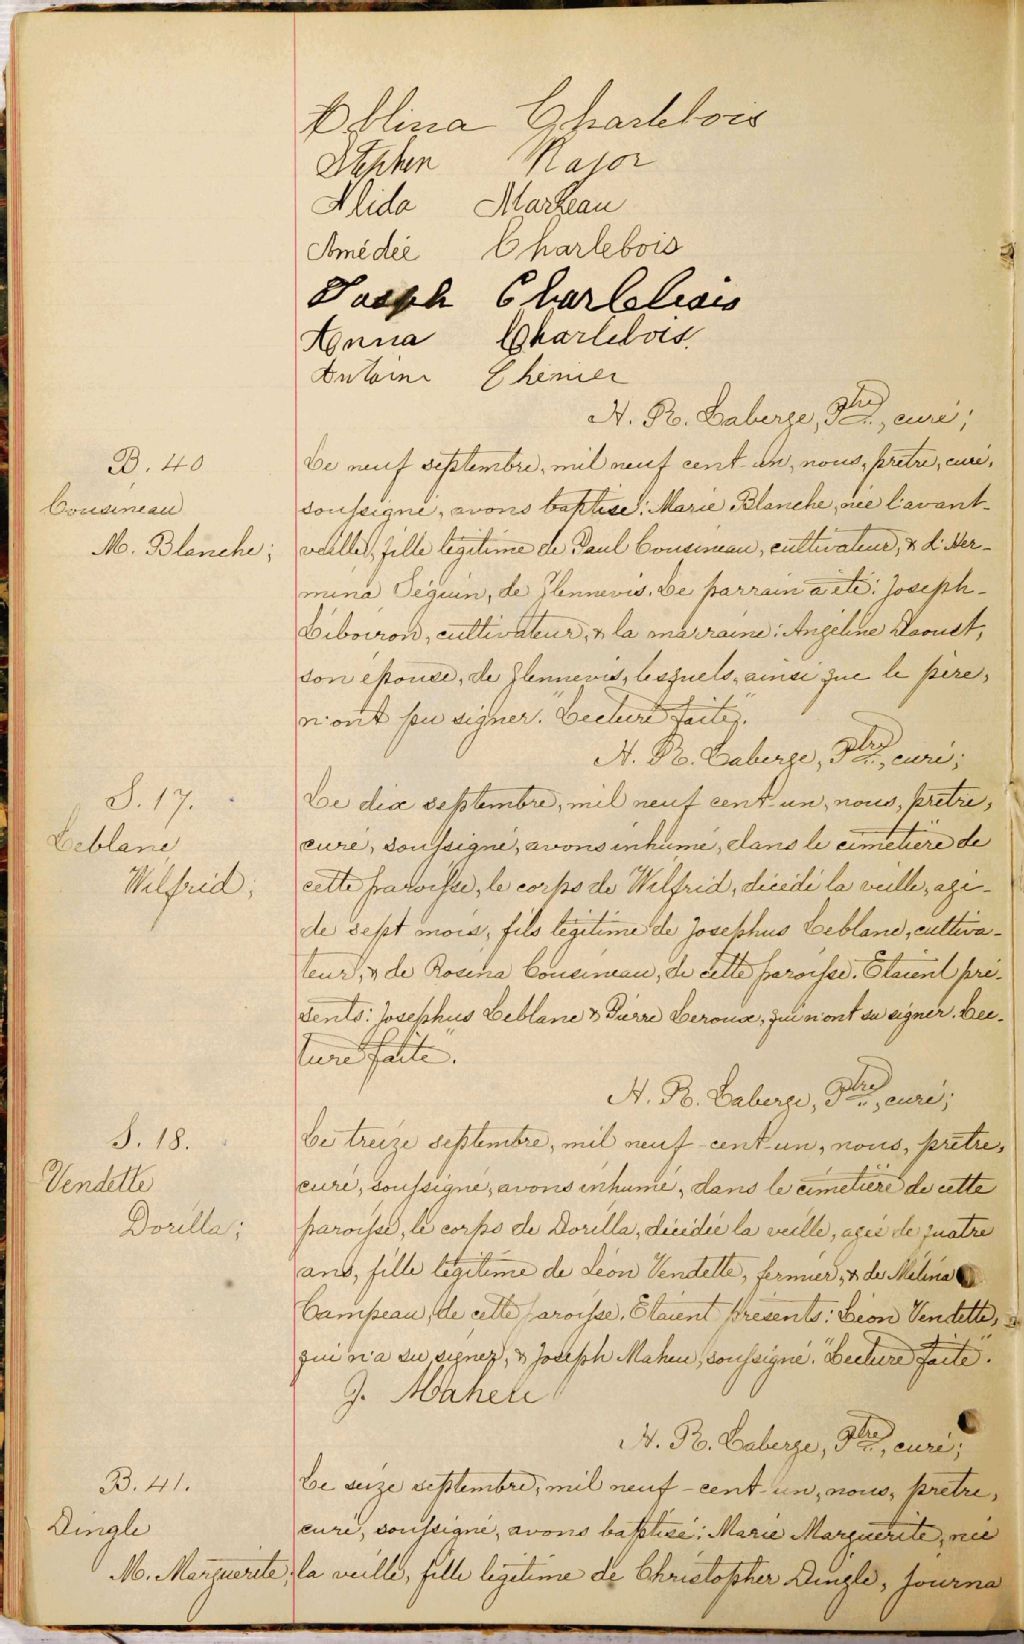 Oblina Charlebois
Stephen Major
Alida Marleau
Amédée Charlebois
Joseph Charlebois
Anna Charlebois.
Antoine Chénier
H. R. Laberge, Ptre, curé;
B. 40
Cousineau
M. Blanche;
Le neuf septembre, mil neuf cent-un, nous, prêtre, curé,
soussigné, avons baptisé: Marie Blanche, née l'avant-
veille, fille légitime de Paul Cousineau, cultivateur, & d'Her-
mina Séguin, de Glennevis. Le parrain a été: Joseph-
Liboiron, cultivateur, & la marraine: Angéline Daoust,
son épouse, de Glennevis, lesquels, ainsi que le père,
n'ont pu signer. "Lecture faite".
H. R. Laberge, Ptre, curé;
S. 17.
Leblanc
Wilfrid;
Le dix septembre, mil neuf cent-un, nous, prêtre,
curé, soussigné, avons inhumé, dans le cimetière de
cette paroisse, le corps de Wilfrid, décédé la veille, agé-
de sept mois, fils légitime de Josephus Leblanc, cultiva-
teur, & de Rosina Cousineau, de cette paroisse. Etaient pré-
sents: Josephus Leblanc & Pierre Leroux, qui n'ont su signer. Lec-
ture faite".
H. R. Laberge, Ptre, curé;
S. 18.
Vendette
Dorilla;
Le treize septembre, mil neuf-cent-un, nous, prêtre,
curé, soussigné, avons inhumé, dans le cimetière de cette
paroisse, le corps de Dorilla, décédée la veille, agée de quatre
ans, fille légitime de Léon Vendette, fermier, & de Mélina
Campeau, de cette paroisse. Etaient présents: Léon Vendette,
qui n'a su signer, & Joseph Maheu, soussigné. "Lecture faite".
J. Maheu
H. R. Laberge, Ptre, curé;
B. 41.
Dingle
M. Marguerite;
Le seize septembre, mil neuf-cent-un, nous, prêtre,
curé, soussigné, avons baptisé: Marie Marguerite, née
la veille, fille légitime de Christopher Dingle, journa